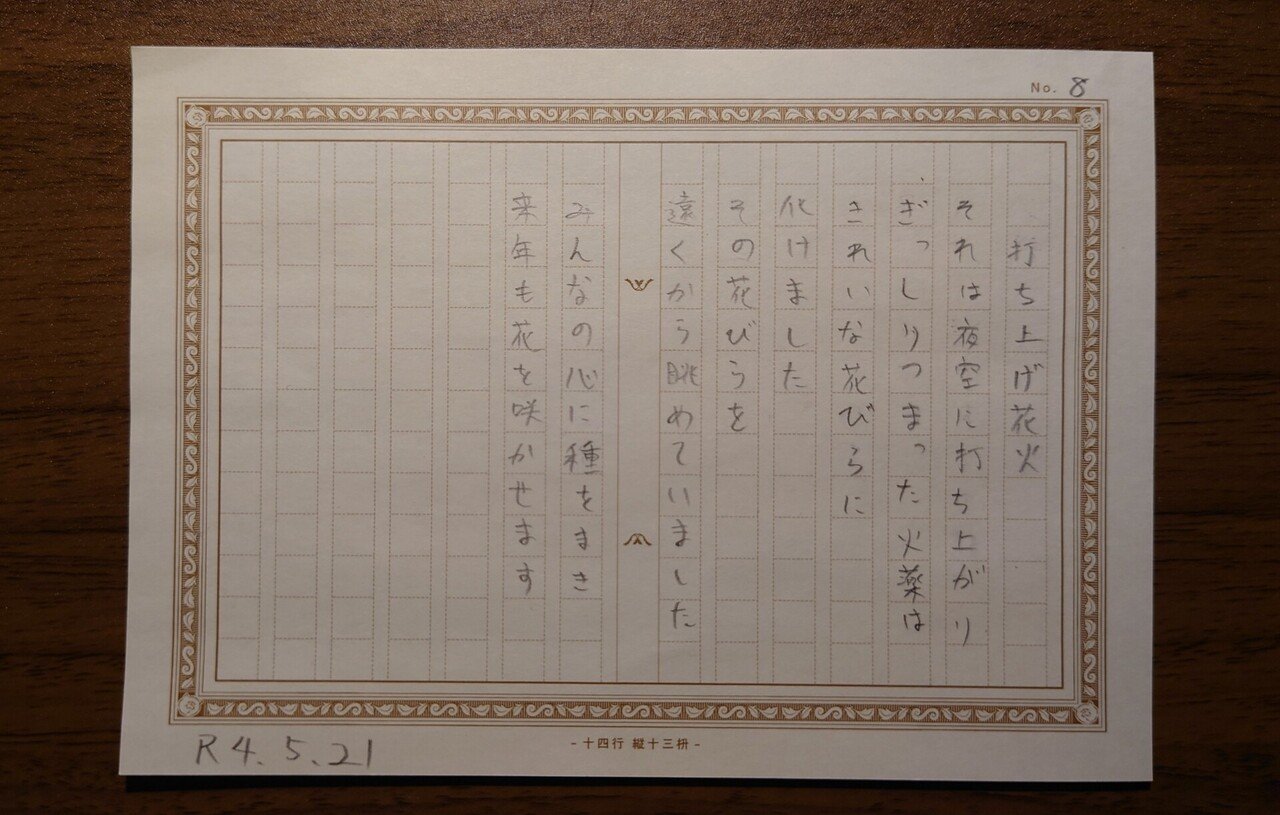 No. 8
打ち上げ花火
それは夜空に打ち上がり
ぎっしりつまった火薬は
きれいな花びらに
化けました
その花びらを
遠くから眺めていました
みんなの心に種をまき
来年も花を咲かせます
-十四行 縦十三枡-
R4.5.21